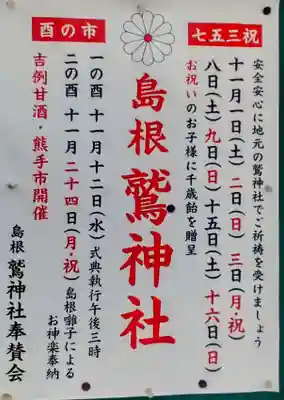 七五三祝
安全安心に地元の鷲神社でご祈祷を受けましょう
十一月一日(土) 二日(日) 三日(月・祝)
八日(土) 九日(日) 十五日(土) 十六日(日)
お祝いのお子様に千歳飴を贈呈
島根鷲神社
酉の市
一の酉 十一月十二日(水) 式典執行午後三時
二の酉 十一月二十四日(月・祝) 島根囃子による
お神楽奉納
吉例甘酒・熊手市開催
島根 鷲神社奉賛会